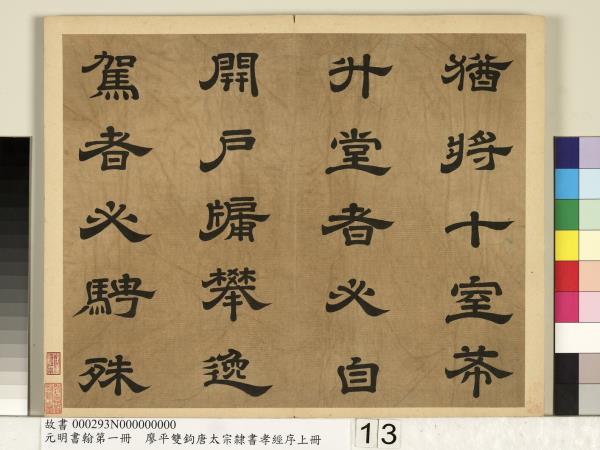 猶將十室苶
升堂者必自
開戶牖攀逸
駕者必騁殊
故書 000293N000000000
元明書翰第一冊　廖平雙鉤唐太宗隸書孝經序上冊
13